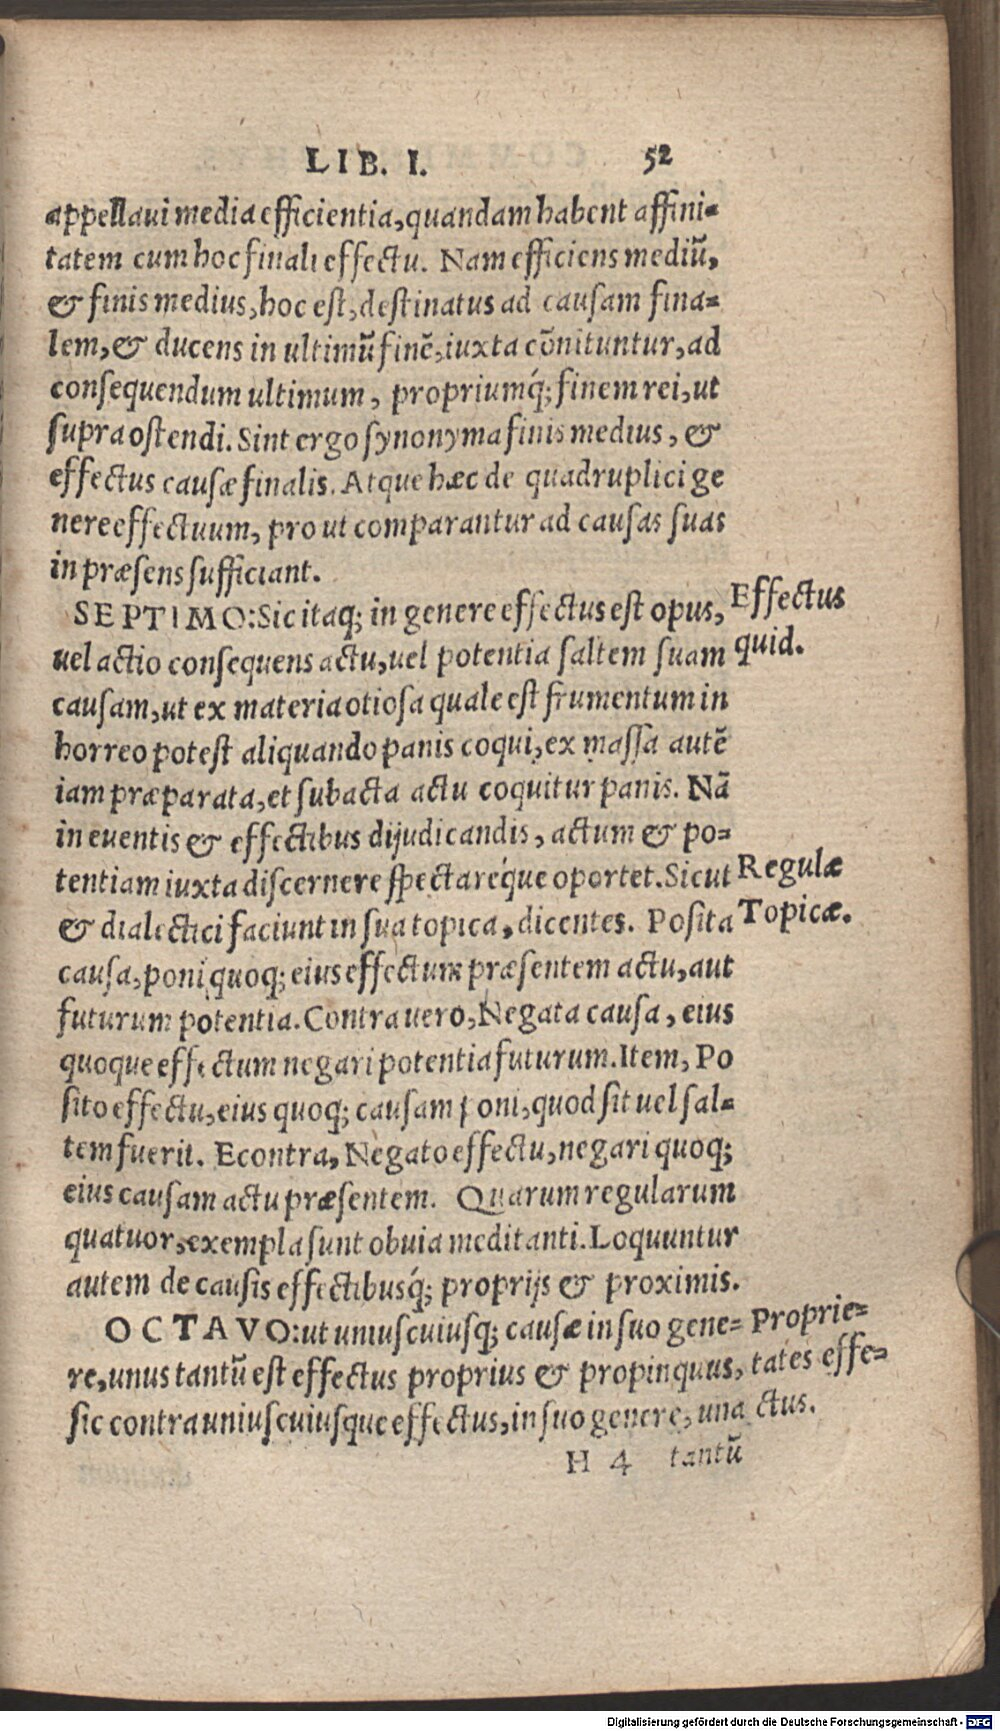 LIB. I. 52
appellaui media efficientia, quandam habent affini-
tatem cum hoc finali effectu. Nam efficiens mediũ,
& finis medius, hoc est, destinatus ad causam fina-
lem, & ducens in ultimũ finẽ, iuxta cõnituntur, ad
consequendum ultimum, propriumq́; finem rei, ut
supra ostendi. Sint ergo synonyma finis medius, &
effectus causæ finalis. Atque hæc de quadruplici ge
nere effectuum, pro ut comparantur ad causas suas
in præsens sufficiant.
SEPTIMO: Sic itaq; in genere effectus est opus, Effectus
uel actio consequens actu, uel potentia saltem suam quid.
causam, ut ex materia otiosa quale est frumentum in
horreo potest aliquando panis coqui, ex massa autẽ
iam præparata, et subacta actu coquitur panis. Nã
in euentis & effectibus dijudicandis, actum & po-
tentiam iuxta discernere spectareq́ue oportet. Sicut Regulæ
& dialectici faciunt in sua topica, dicentes. Posita Topicæ.
causa, poni quoq; eius effectum præsentem actu, aut
futurum potentia. Contra uero, Negata causa, eius
quoque effectum negari potentia futurum. Item, Po
sito effectu, eius quoq; causam poni, quod sit uel sal-
tem fuerit. Econtra, Negato effectu, negari quoq;
eius causam actu præsentem. Quarum regularum
quatuor, exempla sunt obuia meditanti. Loquuntur
autem de causis effectibusq́; proprijs & proximis.
OCTAVO: ut uniuscuiusq; causæ in suo gene- Proprie-
re, unus tantũ est effectus proprius & propinquus, tates effe-
sic contra uniuscuiusque effectus, in suo genere, una ctus.
H 4 tantũ
Digitalisierung gefördert durch die Deutsche Forschungsgemeinschaft - DFG